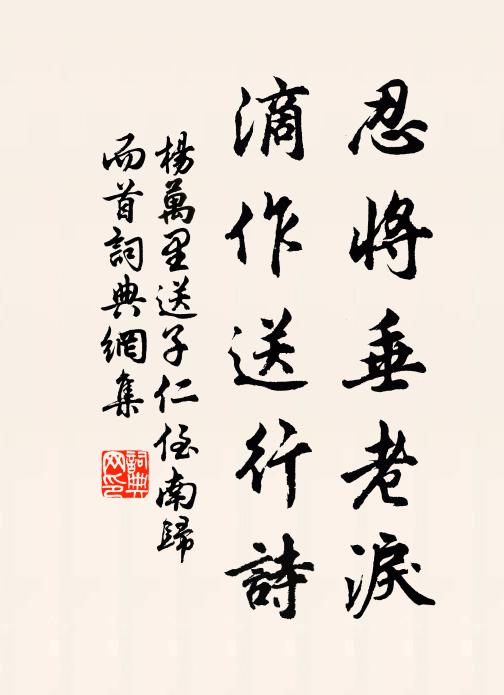 忍將垂老淚
滴作送行詩
楊萬里送子仁侄南歸
而首詞典網集
詞典
网印